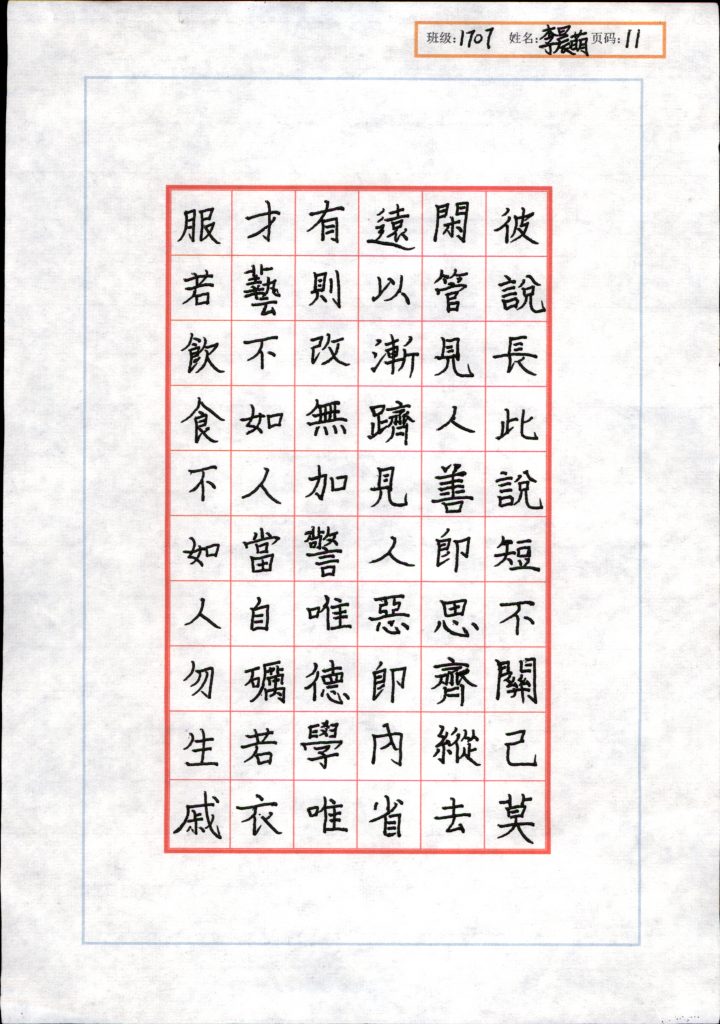 班级:1707 姓名:李昊萌 页码:11
彼說長此說短不關己莫
閑管見人善即思齊縱去
遠以漸躋見人惡即內省
有則改無加警唯德學唯
才藝不如人當自礪若衣
服若飲食不如人勿生戚